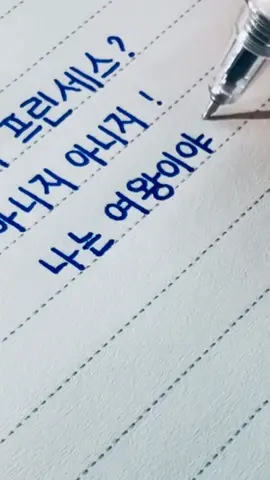 프린세스?
아니지 아니지!
나는 여왕이야